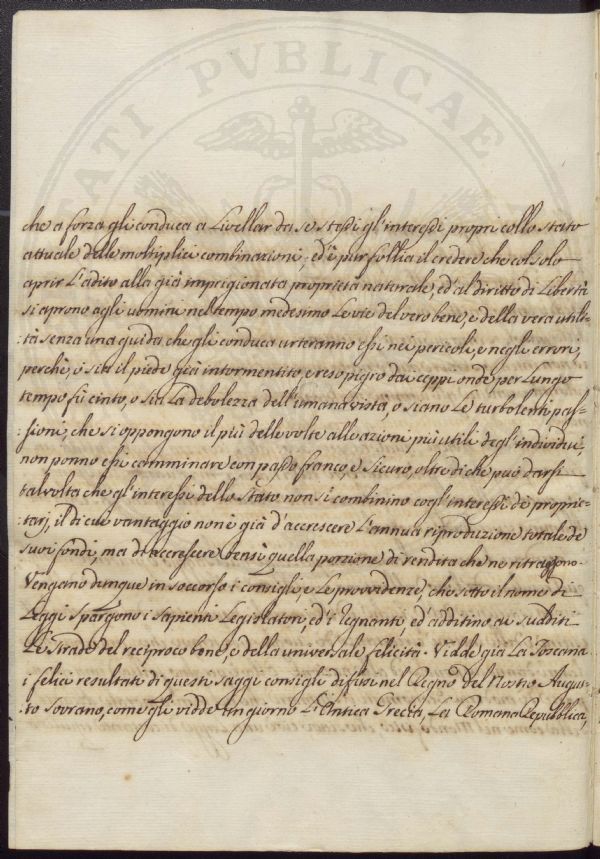 ATI PVBLICAE
che a forza gli conduca a Livellar da se stessi gl'interessi propri collo stato
attuale delle moltiplici combinazioni; ed'è pur follia il credere che col solo
aprir L'adito alla già imprigionata proprietà naturale, ed'al diritto di Libertà
si aprono agli uomini nel tempo medesimo Le vie del vero bene, e della vera utili-
:tà senza una guida che gli conduca urteranno essi nei pericoli, e negli errori,
perchè, o sia il piede già intormentito, e reso pigro dai ceppi onde per Lungo
tempo fù cinto, o sia La debolezza dell'umana vista, o siano Le turbolenti pas-
:sioni, che si oppongono il più delle volte alle azioni più utili degl'individui,
non ponno essi camminare con passo franco, e sicuro, oltre di che può darsi
talvolta che gl'interessi dello Stato non si combinino cogl'interessi de proprie-
:tarj, il di cui vantaggio non è già d'accrescere L'annua riproduzione totale de
suoi fondi, ma di accrescere bensì quella porzione di rendita che ne ritraggono.
Vengano dunque in soccorso i consigli, e Le provvidenze, che sotto il nome di
Leggi spargono i sapienti Legislatori, ed'i Regnanti, ed'additino ai sudditi
Le strade del reciproco bene, e della universale felicità. Vidde già La Toscana
i felici resultati di questi saggi consigli diffusi nel Regno del Nostro Augus-
:to Sovrano, come gli vidde un giorno L'Antica Grecia, La Romana Repubblica,